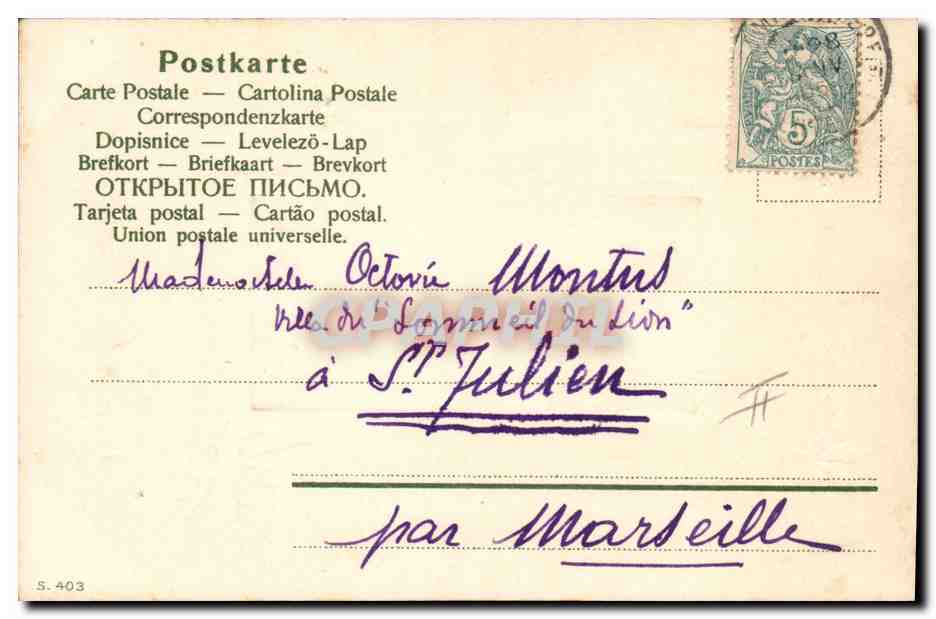 Postkarte
Carte Postale — Cartolina Postale
Correspondenzkarte
Dopisnice — Levelező-Lap
Brefkort — Briefkaart — Brevkort
ОТКРЫТОЕ ПИСЬМО.
Tarjeta postal — Cartão postal.
Union postale universelle.
5c
POSTES
Octavie Montus
Villa du "Sommeil du Lion"
à St. Julien
par Marseille
S. 403
CPARAMA